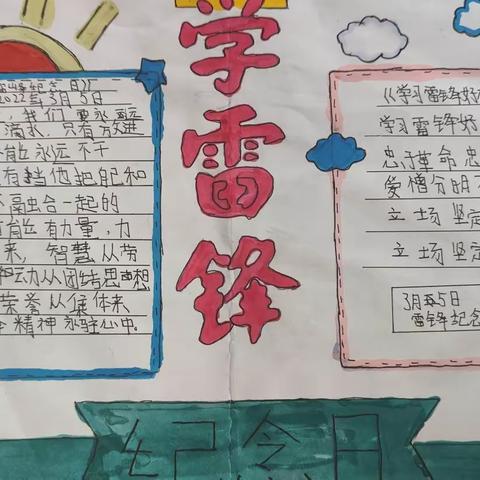 学雷锋
雷锋纪念日》
2022年3月5日
,我们要永远
滴水,只有放进
能永远不干
有当他把自己和
融合一起的
有能有力量,力
来,智慧从劳
行动从团结思想
荣誉从集体来
精神永驻心中。
《学习雷锋好
学习雷锋好
忠于革命忠
爱憎分明不
立场坚定
立场坚定
3月5日
雷锋纪念
纪念日